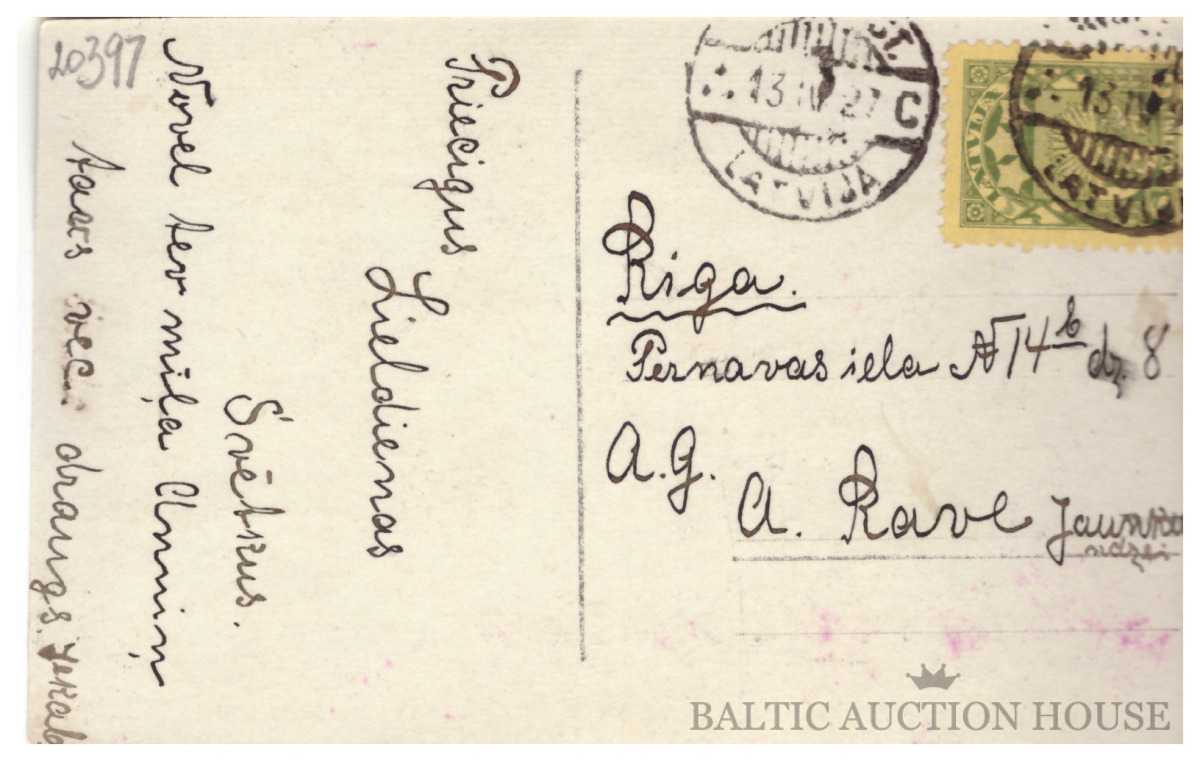 20397
Priecigus
Lieldienas
Svētkus.
Novēl tev miļa Anniņ
tavs vec. draugs. Jekab
13 IV 27
C
LATVIJA
LATVIJA
13 IV
LATVIJ
Riga.
Pernavas iela № 14 b dz. 8
A. G.
A. Rave Jaunk
ndzei
BALTIC AUCTION HOUSE